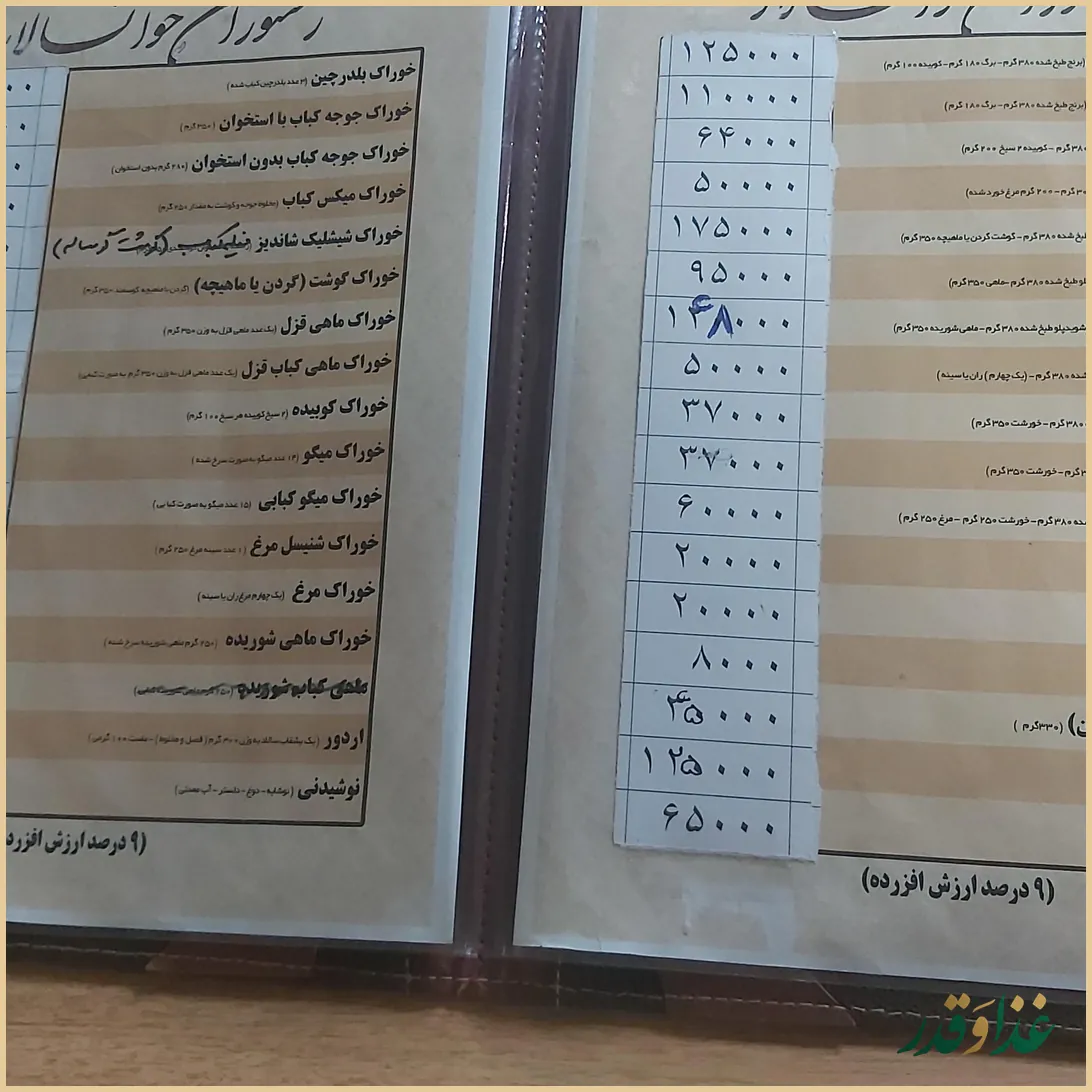 (برنج طبخ شده ۳۸۰ گرم - برگ ۱۸۰ گرم - کوبیده ۱۰۰ گرم) ۱۲۵۰۰۰
(برنج طبخ شده ۳۸۰ گرم - برگ ۱۸۰ گرم) ۱۱۰۰۰۰
گرم - کوبیده ۲ سیخ ۲۰۰ گرم) ۶۴۰۰۰
گرم - ۲۰۰ گرم مرغ خورد شده) ۵۰۰۰۰
طبخ شده ۳۸۰ گرم - گوشت گردن یا ماهیچه ۳۵۰ گرم) ۱۷۵۰۰۰
طبخ شده ۳۸۰ گرم - ماهی ۳۵۰ گرم) ۹۵۰۰۰
شویدپلو طبخ شده ۳۸۰ گرم - ماهی شوریده ۳۵۰ گرم) ۱۴۸۰۰۰
شده ۳۸۰ گرم - (یک چهارم) ران یا سینه) ۵۰۰۰۰
۳۸۰ گرم - خورشت ۳۵۰ گرم) ۳۷۰۰۰
گرم - خورشت ۳۵۰ گرم) ۳۷۰۰۰
شده ۳۸۰ گرم - خورشت ۲۵۰ گرم - مرغ ۲۵۰ گرم) ۶۰۰۰۰
۲۰۰۰۰
۲۰۰۰۰
۸۰۰۰
(۳۳۰ گرم) ۴۵۰۰۰
۱۲۵۰۰۰
۶۵۰۰۰
(۹ درصد ارزش افزرده)
رستوران خوانسالار
خوراک بلدرچین (۳ عدد بلدرچین کباب شده)
خوراک جوجه کباب با استخوان (۳۵۰ گرم)
خوراک جوجه کباب بدون استخوان (۲۸۰ گرم بدون استخوان)
خوراک میکس کباب (مخلوط جوجه و گوشت به مقدار ۲۵۰ گرم)
خوراک شیشلیک شاندیز
خوراک گوشت (گردن یا ماهیچه) (گردن یا ماهیچه گوسفند ۳۵۰ گرم)
خوراک ماهی قزل (یک عدد ماهی قزل به وزن ۳۵۰ گرم)
خوراک ماهی کباب قزل (یک عدد ماهی قزل به وزن ۳۵۰ گرم به صورت کبابی)
خوراک کوبیده (۲ سیخ کوبیده هر سیخ ۱۰۰ گرم)
خوراک میگو (۱۴ عدد میگو به صورت سرخ شده)
خوراک میگو کبابی (۱۵ عدد میگو به صورت کبابی)
خوراک شنیسل مرغ (۱ عدد سینه مرغ ۲۵۰ گرم)
خوراک مرغ (یک چهارم مرغ ران یا سینه)
خوراک ماهی شوریده (۲۵۰ گرم ماهی شوریده سرخ شده)
ماهی کباب شوریده
اردور (یک بشقاب سالاد به وزن ۳۰۰ گرم (فصل و مخلوط) - ماست ۱۰۰ گرمی)
نوشیدنی (نوشابه - دوغ - دلستر - آب معدنی)
(۹ درصد ارزش افزرد
غذا و قدر